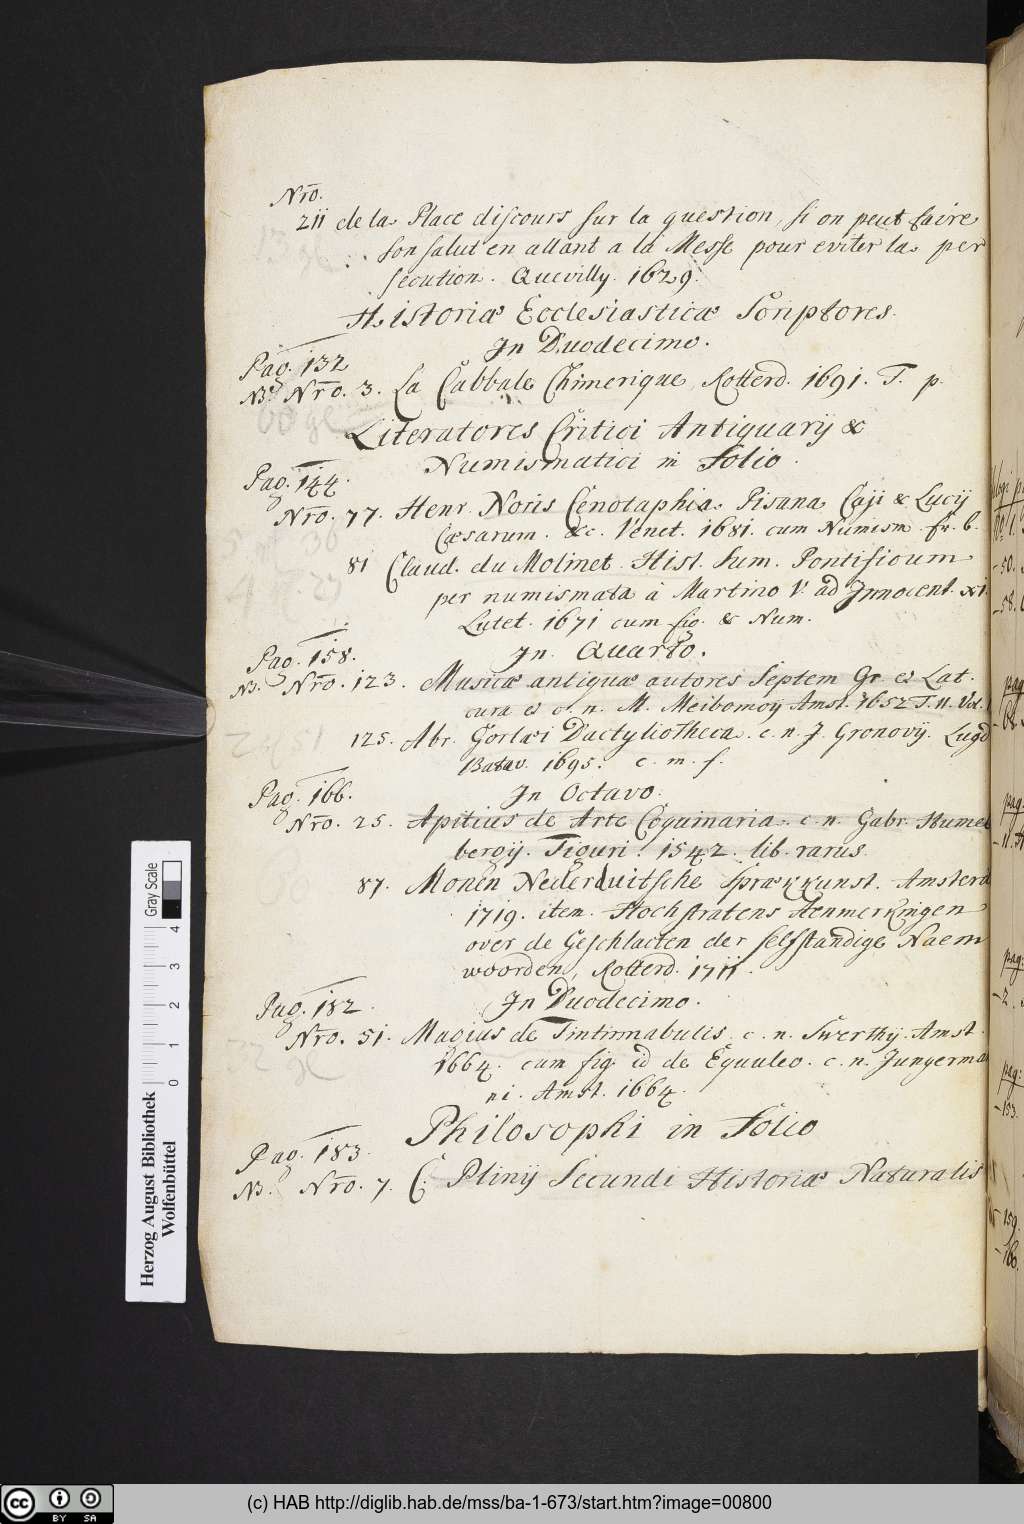 Nro.
211 de la Place discours sur la question, si on peut faire
son salut en allant a la Messe pour eviter la per
secution. Quevilly. 1629.
Historiæ Ecclesiasticæ Scriptores.
In Duodecimo.
Pag. 132
NB. Nro. 3. La Cabbale Chimerique, Rotterd. 1691. T. p.
Literatores Critici Antiquarij &
Numismatici in Folio.
Pag. 144.
Nro. 77. Henr. Noris Cenotaphia Pisana Caji & Lucij
Cæsarum. &c. Venet. 1681. cum Numism. fr. b.
81 Claud. du Molinet Hist. Sum. Pontificum
per numismata à Martino V. ad Innocent. XI.
Lutet. 1671 cum fig. & Num.
Pag. 158.
In Quarto.
NB. Nro. 123. Musicæ antiquæ autores Septem Gr. et Lat.
cura et c. n. M. Meibomoy Amst. 1652 T. II. Vol.
125. Abr. Gorlæi Dactyliotheca. c. n. J. Gronovij. Lugd
Batav. 1695. c. m. f.
Pag. 166.
In Octavo.
Nro. 25. Apitius de Arte Coquinaria. c. n. Gabr. Humel
bergij. Tiguri. 1542. lib. rarus.
87. Monen Nederduitsche Spraekkunst. Amsterd
1719. item. Hochstratens Aenmerkingen
over de Geschlacten der selfstandige Naem
woorden, Rotterd. 1711.
Pag. 182.
In Duodecimo.
Nro. 51. Magius de Tintinnabulis. c. n. Swerthij. Amst.
1664. cum fig. id de Equuleo. c. n. Jungerma
ni. Amst. 1664.
Philosophi in Folio
Pag. 183.
NB. Nro. 7. C. Plinij Secundi Historiæ Naturalis
pag
pag.
pag.
- 2.
pag:
- 153.
159.
- 160.
Gray Scale
0 1 2 3 4
Herzog August Bibliothek
Wolfenbüttel
cc BY SA
(c) HAB http://diglib.hab.de/mss/ba-1-673/start.htm?image=00800